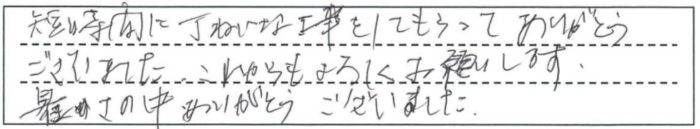 短時間に丁ねいな工事をしてもらってありがとう
ございました。これからもよろしくお願いします.
暑さの中ありがとうございました.